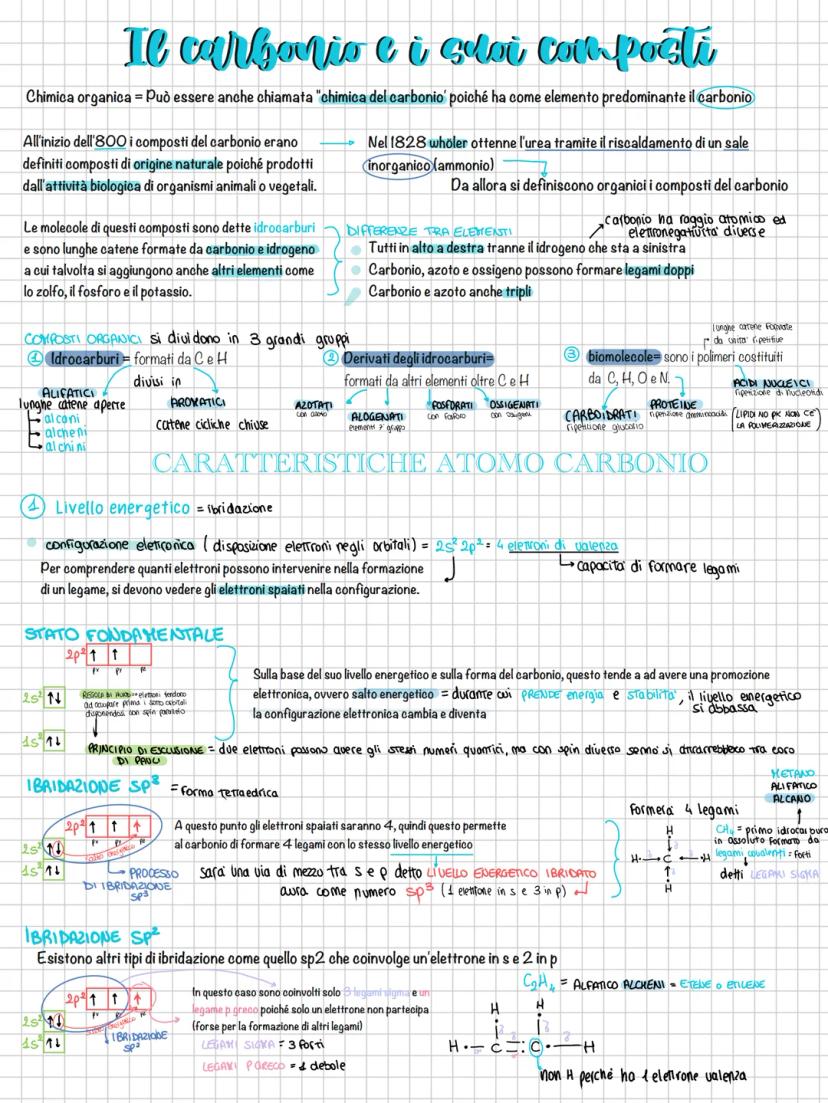 Il carbonio e i suoi composti
Chimica organica = Può essere anche chiamata "chimica del carbonio' poiché ha come elemento predominante il carbonio
All'inizio dell'800 i composti del carbonio erano
definiti composti di origine naturale poiché prodotti
dall'attività biologica di organismi animali o vegetali.
Nel 1828 whöler ottenne l'urea tramite il riscaldamento di un sale
inorganico (ammonio)
Da allora si definiscono organici i composti del carbonio
Le molecole di questi composti sono dette idrocarburi
e sono lunghe catene formate da carbonio e idrogeno
a cui talvolta si aggiungono anche altri elementi come
lo zolfo, il fosforo e il potassio.
DIFFERENZE TRA ELEMENTI
carbonio ha raggio atomico ed
elettronegatività diverse
Tutti in alto a destra tranne il idrogeno che sta a sinistra
Carbonio, azoto e ossigeno possono formare legami doppi
Carbonio e azoto anche tripli
COMPOSTI ORGANICI si dividono in 3 grandi gruppi
1 Idrocarburi = formati da C e H
divisi in
ALIFATICI
lunghe catene aperte
alcani
alcheni
alchini
AROMATICI
catene cicliche chiuse
2 Derivati degli idrocarburi=
formati da altri elementi oltre C e H
AZOTATI
con azoto
ALOGENATI
elementi 7° gruppo
FOSFORATI
con fosforo
OSSIGENATI
con ossigeno
lunghe catene formate
da unità ripetitive
3 biomolecole= sono i polimeri costituiti
da C, H, O e N.
CARBOIDRATI
ripetizione glucosio
PROTEINE
ripetizione amminoacidi
ACIDI NUCLEICI
ripetizione di nucleotidi
(LIPIDI NO PK NON C'È
LA POLIMERIZZAZIONE)
CARATTERISTICHE ATOMO CARBONIO
1 Livello energetico = ibridazione
configurazione elettronica ( disposizione elettroni negli orbitali) = 2s² 2p² = 4 elettroni di valenza
capacità di formare legami
Per comprendere quanti elettroni possono intervenire nella formazione
di un legame, si devono vedere gli elettroni spaiati nella configurazione.
STATO FONDAMENTALE
2p² ↑ ↑
Px Py Pz
2s² ↑↓
1s² ↑↓
REGOLA DI HUND = elettroni tendono
ad occupare prima i sotto orbitali
disponendosi con spin parallelo
Sulla base del suo livello energetico e sulla forma del carbonio, questo tende a ad avere una promozione
elettronica, ovvero salto energetico = durante cui PRENDE energia e stabilità, il livello energetico
si abbassa
la configurazione elettronica cambia e diventa
PRINCIPIO DI ESCLUSIONE = due elettroni possono avere gli stessi numeri quantici, ma con spin diverso senno si attrarrebbero tra loro
DI PAULI
IBRIDAZIONE SP³ = forma tetraedrica
2p² ↑ ↑ ↑
Px Py Pz
2s² ↑↓
1s² ↑↓
salto energetico
PROCESSO
DI IBRIDAZIONE
SP³
A questo punto gli elettroni spaiati saranno 4, quindi questo permette
al carbonio di formare 4 legami con lo stesso livello energetico
sarà una via di mezzo tra s e p detto LIVELLO ENERGETICO IBRIDATO
avrà come numero sp³ (1 elettrone in s e 3 in p)
Formerà 4 legami
H
H C H
H
METANO
ALIFATICO
ALCANO
CH₄ = primo idrocarburo
in assoluto formato da
legami covalenti = forti
detti LEGAMI SIGMA
IBRIDAZIONE SP²
Esistono altri tipi di ibridazione come quello sp2 che coinvolge un'elettrone in s e 2 in p
2p² ↑ ↑ ↑
Px Py Pz
2s² ↑↓
1s² ↑↓
salto energetico
IBRIDAZIONE
SP²
In questo caso sono coinvolti solo 3 legami sigma e un
legame p greco poiché solo un elettrone non partecipa
(forse per la formazione di altri legami)
LEGAMI SIGMA = 3 forti
LEGAMI P GRECO = 1 debole
C₂H₄ = ALFATICO ALCHENI = ETENE O ETILENE
H H
H C C H
non H perché ha 1 elettrone valenza